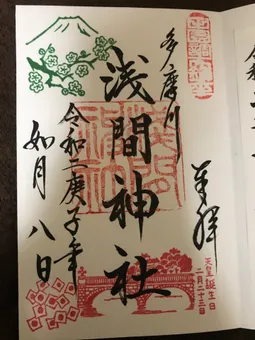 奉拝
多摩川
浅間神社
令和二庚子年
如月八日
天皇誕生日
二月二十三日